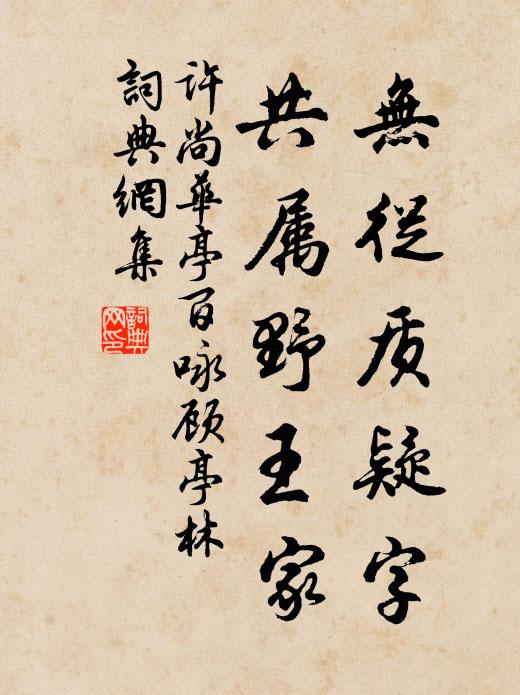 無從质疑字
共属野王家
许尚華亭百咏顾亭林
詞典網集
詞典网印